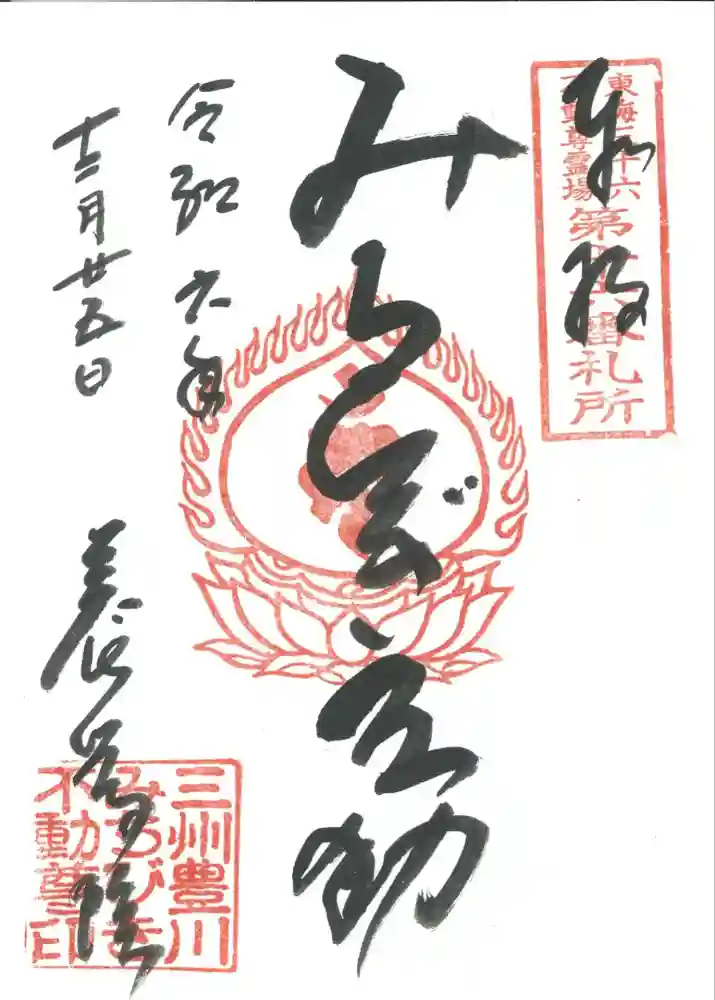 奉拝
東海三十六
不動尊霊場
番札所
みちびき不動
令和六年
十二月廿五日
養學院
三州豊川
みちびき
不動尊印